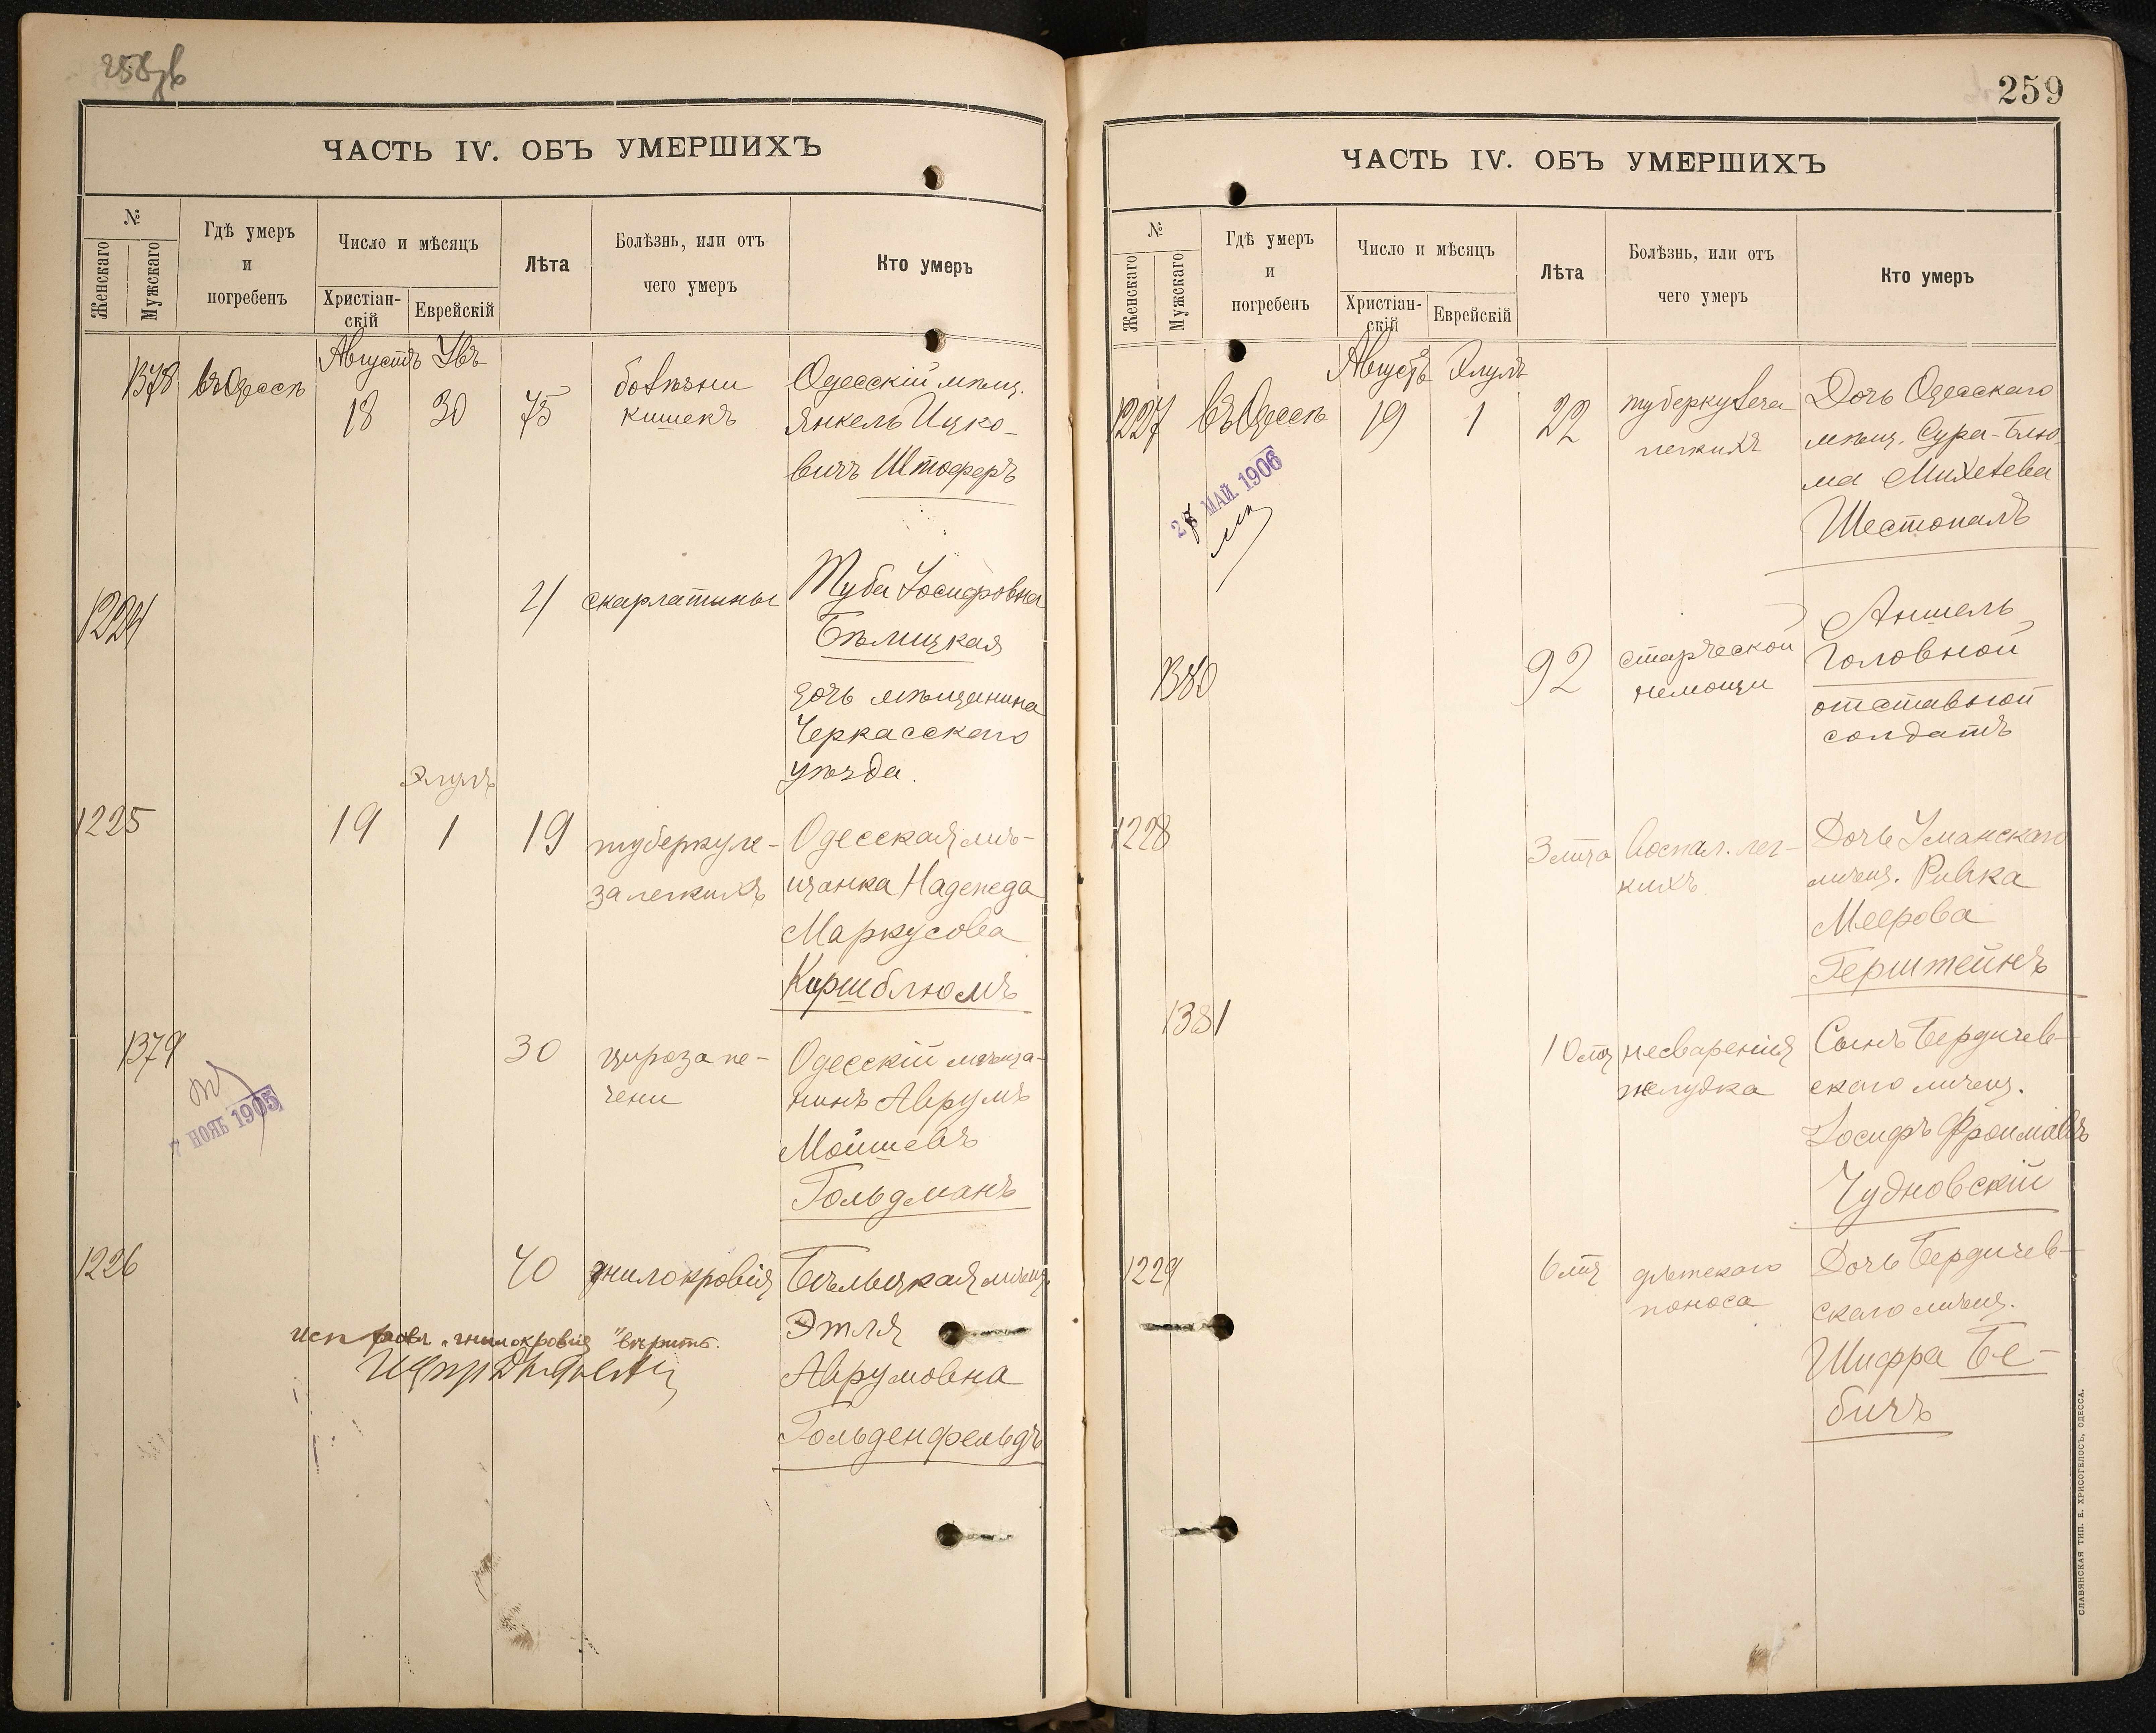 ЧАСТЬ IV. ОБЪ УМЕРШИХЪ
№
Женскаго
Мужскаго
Гдѣ умеръ
и
погребенъ
Число и мѣсяцъ
Христіан-
скій
Еврейскій
Лѣта
Болѣзнь, или отъ
чего умеръ
Кто умеръ
Августъ
1378 въ Одессѣ 18 30 75 болѣзни Одесскій мѣщ.
кишекъ Янкель Ицко-
вичъ Штоферъ
1224 скарлатины Туба Іосифовна
Бѣлицкая
дочь мѣщанина
Черкасскаго
уѣзда.
Элулъ
1225 19 1 19 туберкуле- Одесская мѣ-
за легкихъ щанка Надежда
Маркусова
Киршблюмъ
1379 30 цироза пе- Одесскій мѣща-
чени нинъ Аврумъ
Мошневъ
Гольдманъ
7 НОЯБ 1905
1226 40 гнилокровія Бѣльцкая мѣщ.
Этля
Аврумовна
Гольденфельдъ
испр „гнилокровія" вѣрить.
259
ЧАСТЬ IV. ОБЪ УМЕРШИХЪ
№
Женскаго
Мужскаго
Гдѣ умеръ
и
погребенъ
Число и мѣсяцъ
Христіан-
скій
Еврейскій
Лѣта
Болѣзнь, или отъ
чего умеръ
Кто умеръ
Августъ Элулъ
1227 въ Одессѣ 19 1 22 туберкулеза Дочь Одесскаго
легкихъ мѣщ. Сура-Блю
ма Михелева
Шестопалъ
МАЙ. 1906
1380 92 старческой Аншель
немощи Головной
отставной
солдатъ
1228 3 лѣта воспал. лег- Дочь Уманскаго
кихъ мѣщ. Ривка
Меерова
Герштейнъ
1381 10 несваренія Сынъ Бердичев-
желудка скаго мѣщ.
Іосифъ Фроимовъ
Чудновскій
1229 6 дѣтскаго Дочь Бердичев-
поноса скаго мѣщ.
Шифра Бе-
бичъ
СЛАВЯНСКАЯ ТИП. Е. ХРИСОГЕЛОСЪ, ОДЕССА.